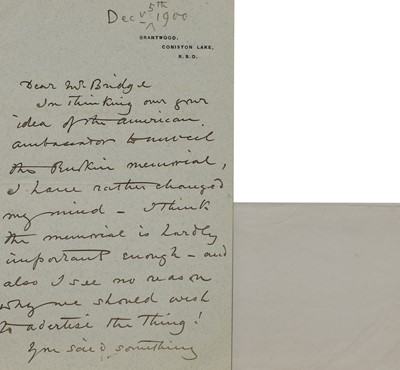 Decr 5th 1900
BRANTWOOD,
CONISTON LAKE,
R.S.O.
Dear Mr Bridge
In thinking over your
idea of the american
ambassador to unveil
the Ruskin memorial,
I have rather changed
my mind - I think
the memorial is hardly
important enough - and
also I see no reason
why we should wish
to advertise the thing!
You said something